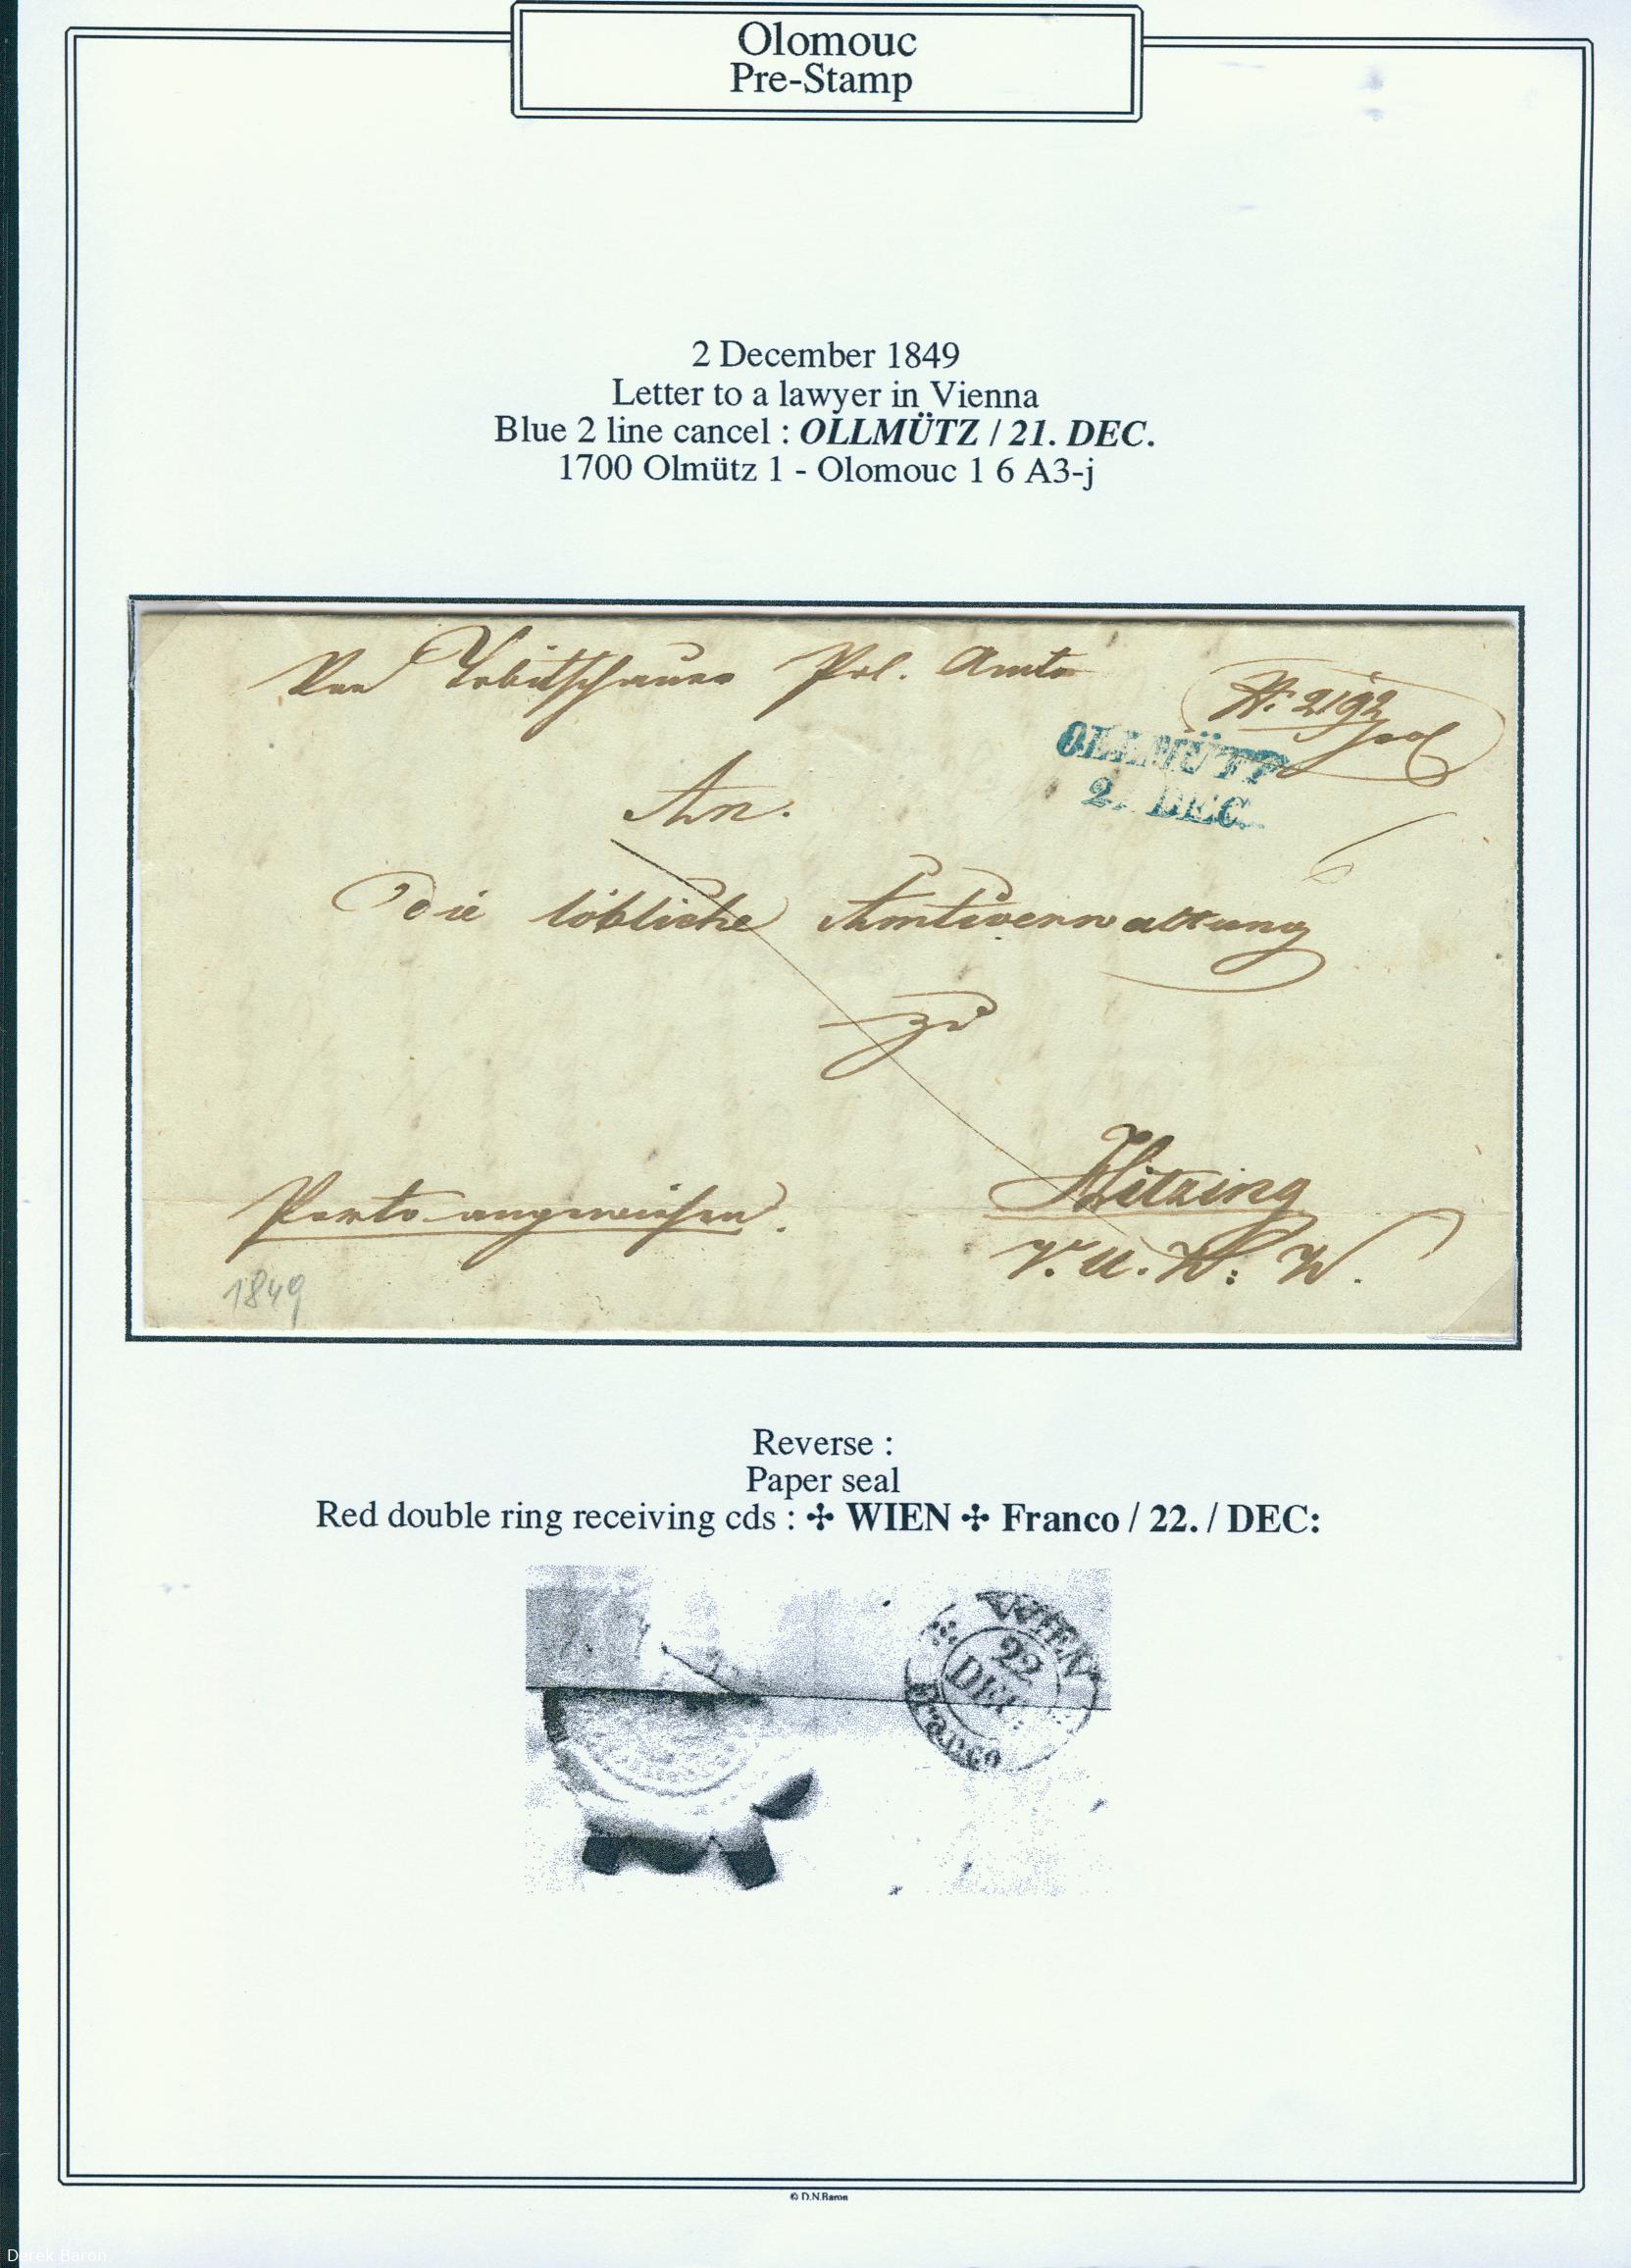 Olomouc
Pre-Stamp
2 December 1849
Letter to a lawyer in Vienna
Blue 2 line cancel : OLLMÜTZ / 21. DEC.
1700 Olmütz 1 - Olomouc 1 6 A3-j
Von Tobitschauer Pol. Amte
N: 2192
OLLMÜTZ
2. DEC.
An.
die löbliche Amtsverwaltung
zu
Hitzing
V. U. W: W.
Porto angewiesen.
1849
Reverse :
Paper seal
Red double ring receiving cds : ✣ WIEN ✣ Franco / 22. / DEC:
WIEN
22
DEC:
Franco
© D.N.Baron
Derek Baron